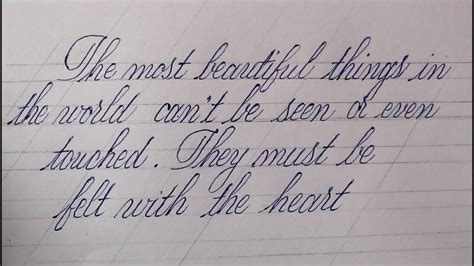 The most beautiful things in
the world can't be seen or even
touched. They must be
felt with the heart